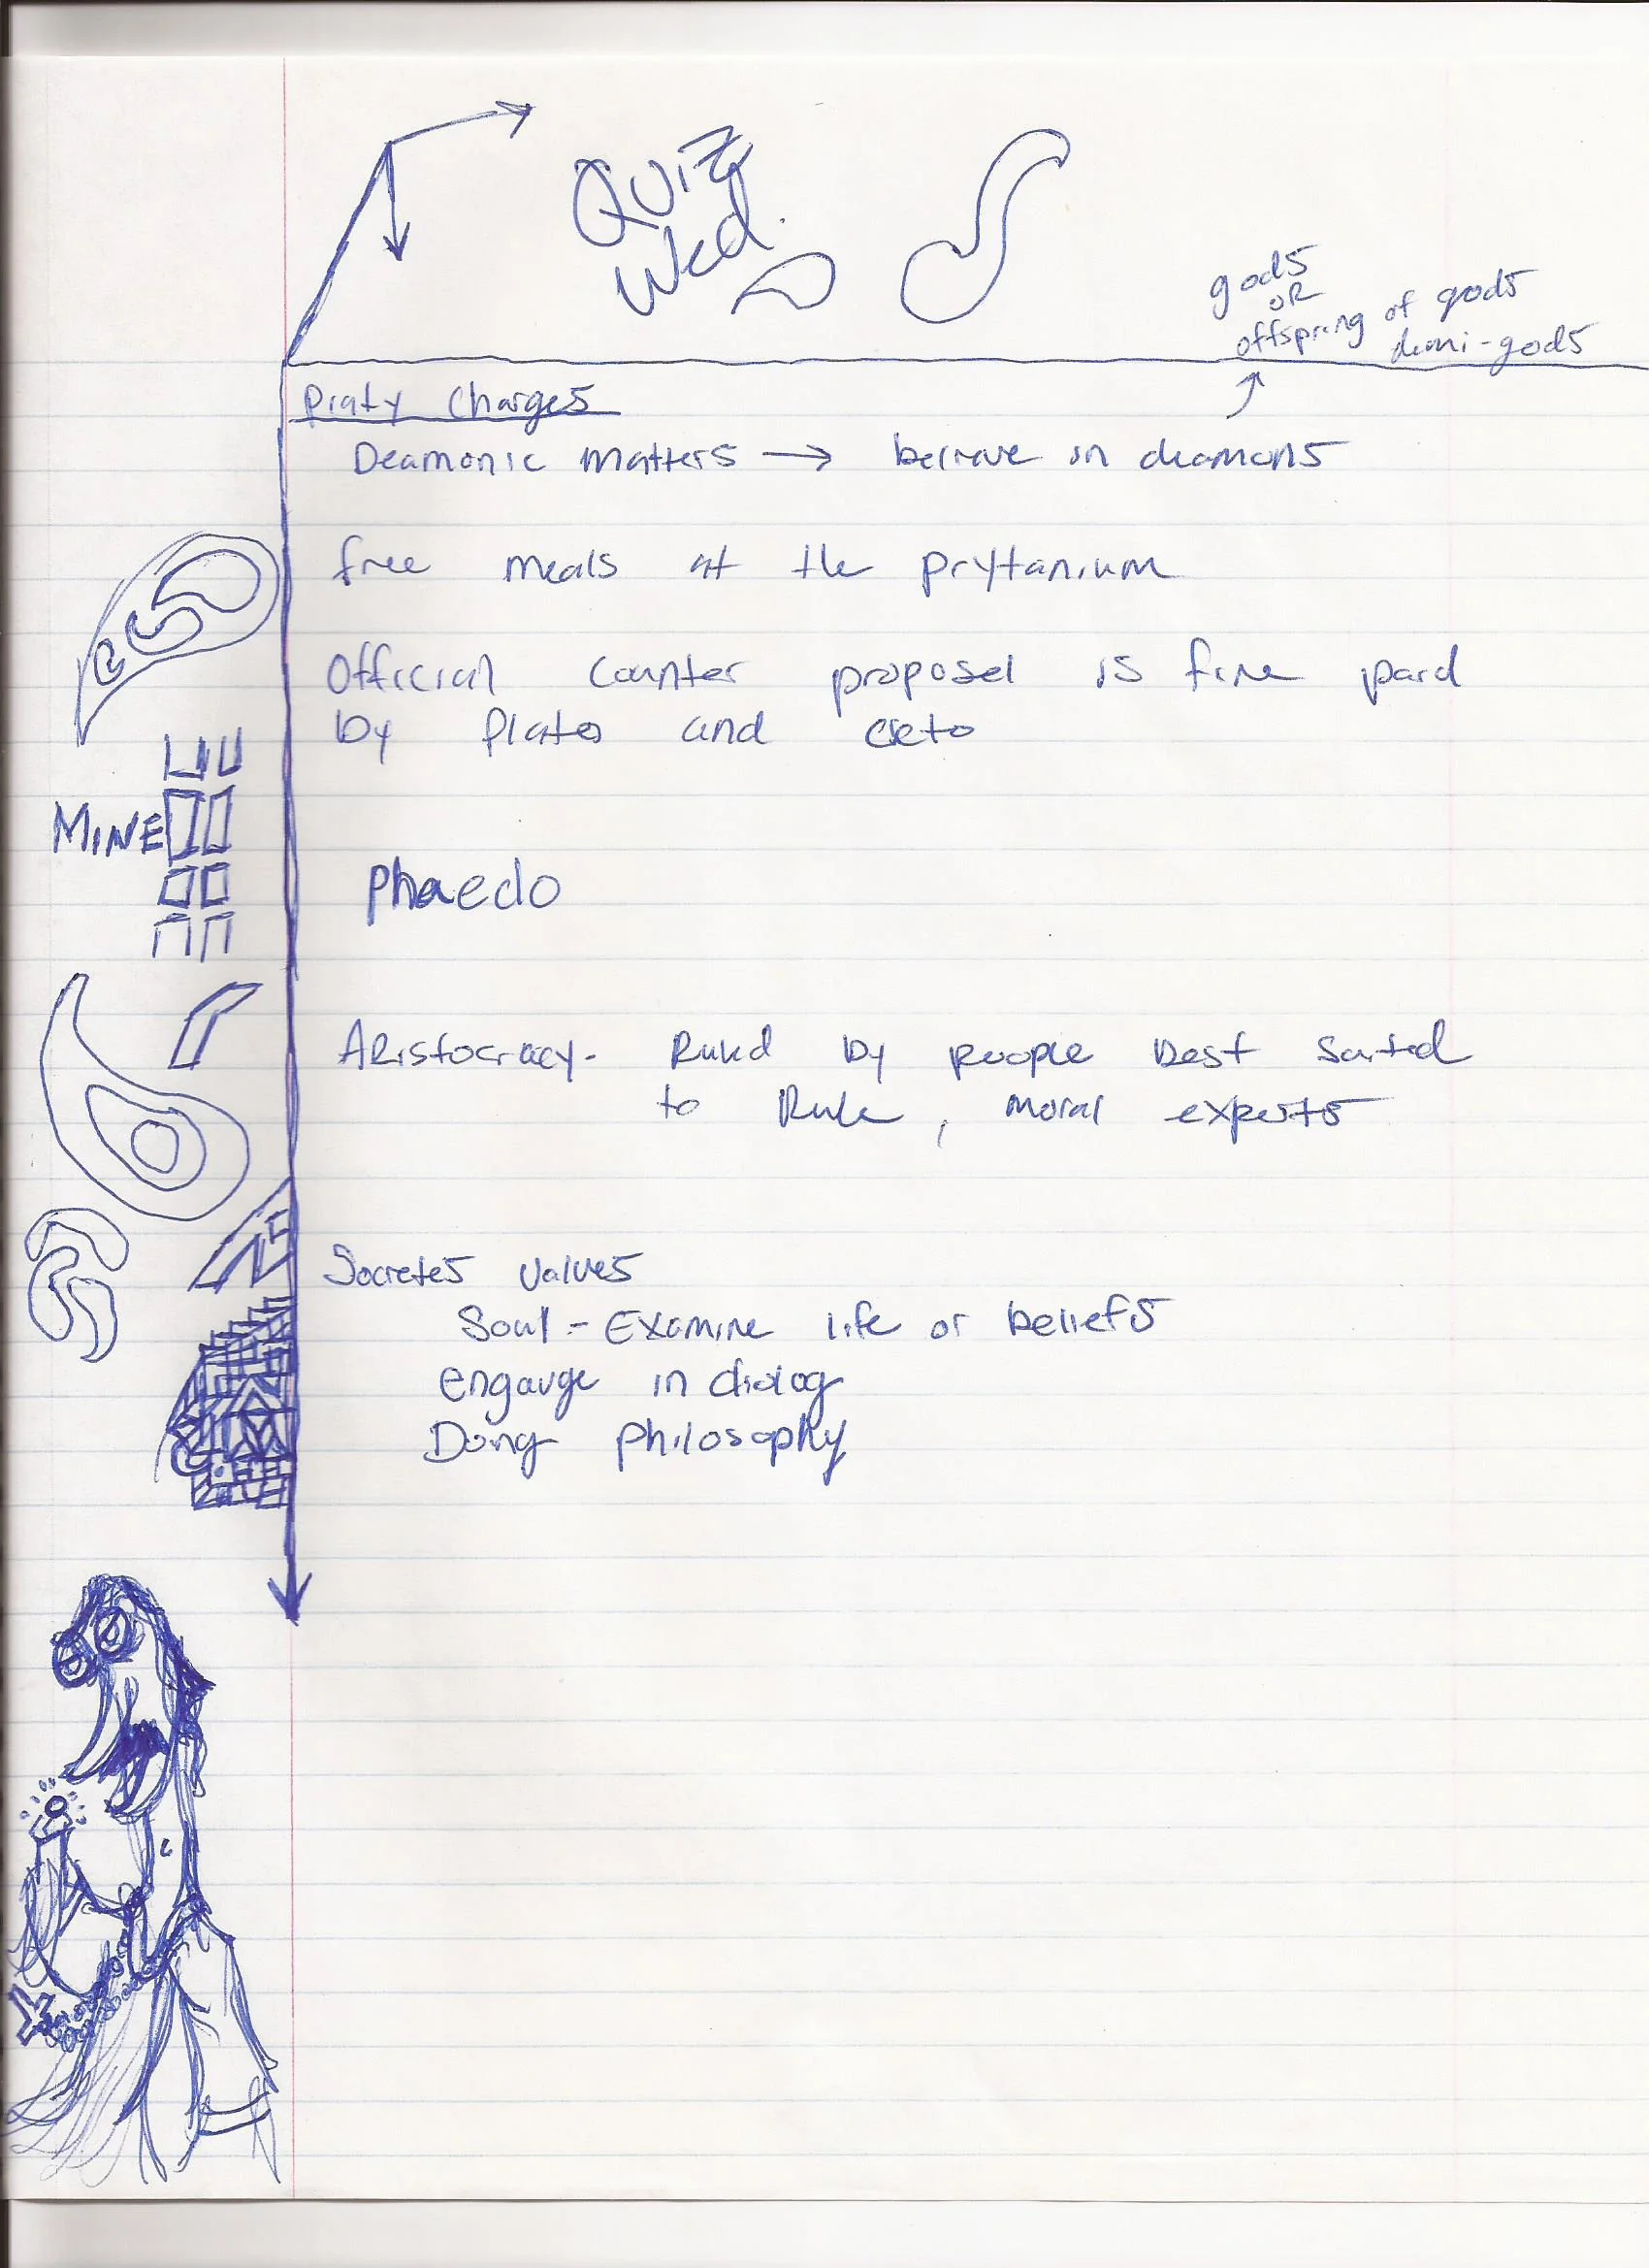 Quiz
Wed.
gods
OR
offspring of gods
demi-gods
Piaty Charges
Deamonic matters → beleave in deamons
free meals at the prytanium
Official counter proposel is fine paid
by Plato and creto
MINE
phaedo
ARistocracy- Ruled by people best suited
to Rule, moral experts
Socretes values
Soul - Examine life or beliefs
engauge in dialog
Doing philosophy